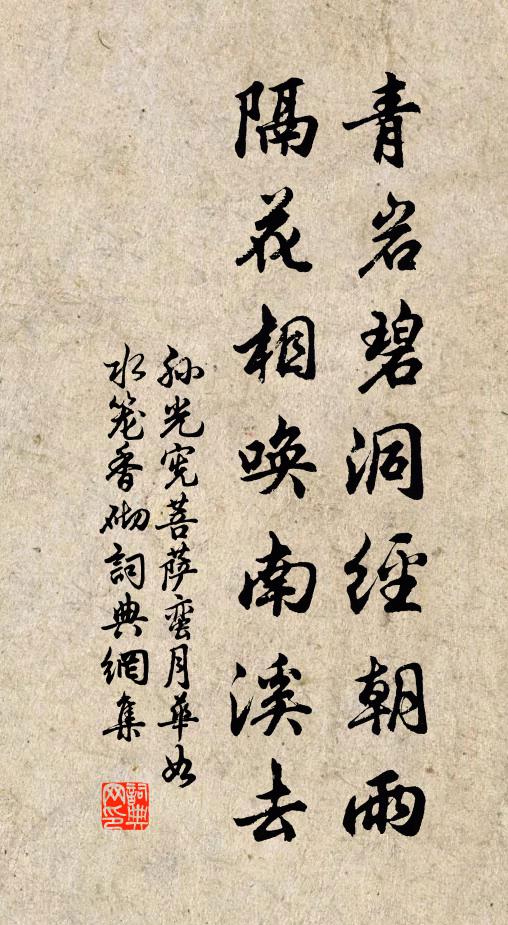 青岩碧洞經朝雨
隔花相喚南溪去
孙光宪菩萨蛮月華如
水笼香砌詞典網集
詞典网印